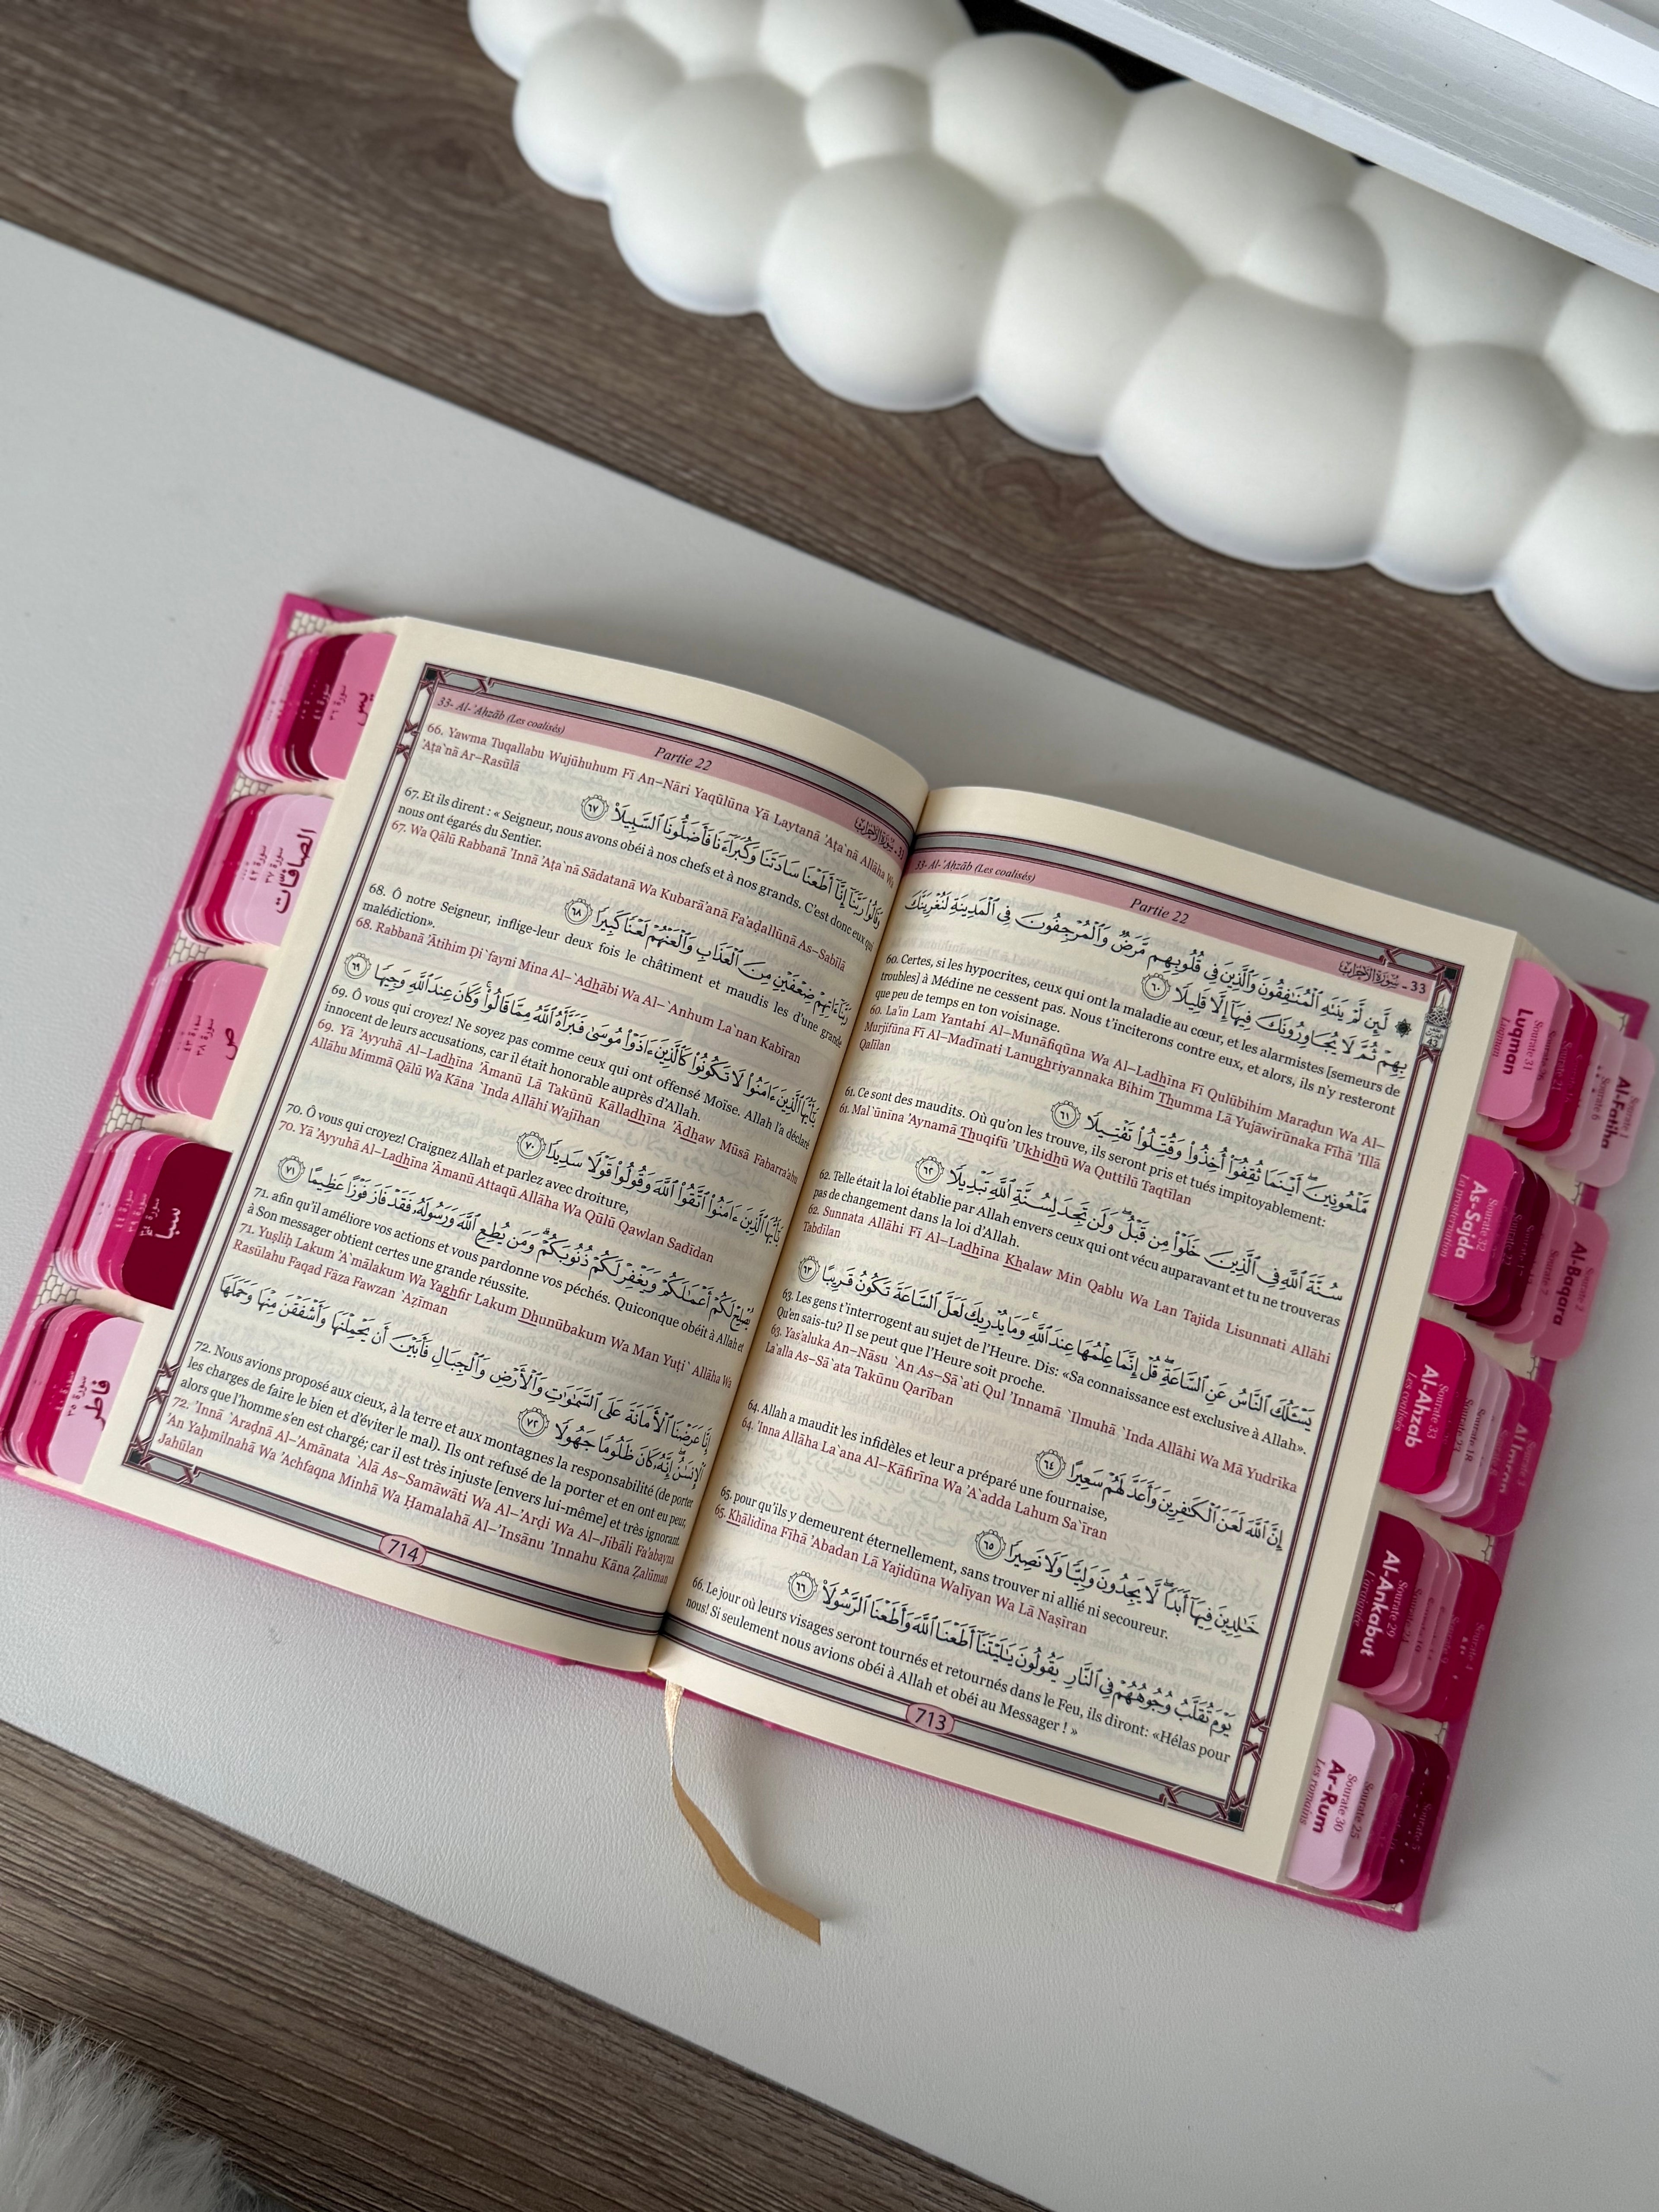 33- Al-'Ahzāb (Les coalisés)
Partie 22
33 - سورة الأحزاب
۞ لَّئِن لَّمْ يَنتَهِ ٱلْمُنَٰفِقُونَ وَٱلَّذِينَ فِى قُلُوبِهِم مَّرَضٌ وَٱلْمُرْجِفُونَ فِى ٱلْمَدِينَةِ لَنُغْرِيَنَّكَ
بِهِمْ ثُمَّ لَا يُجَاوِرُونَكَ فِيهَآ إِلَّا قَلِيلًا ٦٠
60. Certes, si les hypocrites, ceux qui ont la maladie au cœur, et les alarmistes [semeurs de
troubles] à Médine ne cessent pas. Nous t'inciterons contre eux, et alors, ils n'y resteront
que peu de temps en ton voisinage.
60. La'in Lam Yantahi Al–Munāfiqūna Wa Al–Ladhīna Fī Qulūbihim Maraḍun Wa Al–
Murjifūna Fī Al–Madīnati Lanughriyannaka Bihim Thumma Lā Yujāwirūnaka Fīhā 'Illā
Qalīlan
مَّلْعُونِينَ ۖ أَيْنَمَا ثُقِفُوٓا۟ أُخِذُوا۟ وَقُتِّلُوا۟ تَقْتِيلًا ٦١
61. Ce sont des maudits. Où qu'on les trouve, ils seront pris et tués impitoyablement:
61. Mal`ūnīna 'Aynamā Thuqifū 'Ukhidhū Wa Quttilū Taqtīlan
سُنَّةَ ٱللَّهِ فِى ٱلَّذِينَ خَلَوْا۟ مِن قَبْلُ ۖ وَلَن تَجِدَ لِسُنَّةِ ٱللَّهِ تَبْدِيلًا ٦٢
62. Telle était la loi établie par Allah envers ceux qui ont vécu auparavant et tu ne trouveras
pas de changement dans la loi d'Allah.
62. Sunnata Allāhi Fī Al–Ladhīna Khalaw Min Qablu Wa Lan Tajida Lisunnati Allāhi
Tabdīlan
يَسْـَٔلُكَ ٱلنَّاسُ عَنِ ٱلسَّاعَةِ ۖ قُلْ إِنَّمَا عِلْمُهَا عِندَ ٱللَّهِ ۚ وَمَا يُدْرِيكَ لَعَلَّ ٱلسَّاعَةَ تَكُونُ قَرِيبًا ٦٣
63. Les gens t'interrogent au sujet de l'Heure. Dis: «Sa connaissance est exclusive à Allah».
Qu'en sais-tu? Il se peut que l'Heure soit proche.
63. Yas'aluka An–Nāsu `An As–Sā`ati Qul 'Innamā `Ilmuhā `Inda Allāhi Wa Mā Yudrīka
La`alla As–Sā`ata Takūnu Qarīban
إِنَّ ٱللَّهَ لَعَنَ ٱلْكَٰفِرِينَ وَأَعَدَّ لَهُمْ سَعِيرًا ٦٤
64. Allah a maudit les infidèles et leur a préparé une fournaise,
64. 'Inna Allāha La`ana Al–Kāfirīna Wa 'A`adda Lahum Sa`īran
خَٰلِدِينَ فِيهَآ أَبَدًا ۖ لَّا يَجِدُونَ وَلِيًّا وَلَا نَصِيرًا ٦٥
65. pour qu'ils y demeurent éternellement, sans trouver ni allié ni secoureur.
65. Khālidīna Fīhā 'Abadan Lā Yajidūna Walīyan Wa Lā Naṣīran
يَوْمَ تُقَلَّبُ وُجُوهُهُمْ فِى ٱلنَّارِ يَقُولُونَ يَٰلَيْتَنَآ أَطَعْنَا ٱللَّهَ وَأَطَعْنَا ٱلرَّسُولَا۠ ٦٦
66. Le jour où leurs visages seront tournés et retournés dans le Feu, ils diront: «Hélas pour
nous! Si seulement nous avions obéi à Allah et obéi au Messager ! »
713
33- Al-'Ahzāb (Les coalisés)
Partie 22
33 - سورة الأحزاب
66. Yawma Tuqallabu Wujūhuhum Fī An–Nāri Yaqūlūna Yā Laytanā 'Aṭa`nā Allāha Wa
'Aṭa`nā Ar–Rasūlā
وَقَالُوا۟ رَبَّنَآ إِنَّآ أَطَعْنَا سَادَتَنَا وَكُبَرَآءَنَا فَأَضَلُّونَا ٱلسَّبِيلَا۠ ٦٧
67. Et ils dirent : « Seigneur, nous avons obéi à nos chefs et à nos grands. C'est donc eux qui
nous ont égarés du Sentier.
67. Wa Qālū Rabbanā 'Innā 'Aṭa`nā Sādatanā Wa Kubarā'anā Fa'aḍallūnā As–Sabīlā
رَبَّنَآ ءَاتِهِمْ ضِعْفَيْنِ مِنَ ٱلْعَذَابِ وَٱلْعَنْهُمْ لَعْنًا كَبِيرًا ٦٨
68. Ô notre Seigneur, inflige-leur deux fois le châtiment et maudis les d'une grande
malédiction».
68. Rabbanā 'Ātihim Ḍi`fayni Mina Al–`Adhābi Wa Al–`Anhum La`nan Kabīran
يَٰٓأَيُّهَا ٱلَّذِينَ ءَامَنُوا۟ لَا تَكُونُوا۟ كَٱلَّذِينَ ءَاذَوْا۟ مُوسَىٰ فَبَرَّأَهُ ٱللَّهُ مِمَّا قَالُوا۟ ۚ وَكَانَ عِندَ ٱللَّهِ وَجِيهًا ٦٩
69. Ô vous qui croyez! Ne soyez pas comme ceux qui ont offensé Moïse. Allah l'a déclaré
innocent de leurs accusations, car il était honorable auprès d'Allah.
69. Yā 'Ayyuhā Al–Ladhīna 'Āmanū Lā Takūnū Kālladhīna 'Ādhaw Mūsá Fabarra'ahu
Allāhu Mimmā Qālū Wa Kāna `Inda Allāhi Wajīhan
يَٰٓأَيُّهَا ٱلَّذِينَ ءَامَنُوا۟ ٱتَّقُوا۟ ٱللَّهَ وَقُولُوا۟ قَوْلًا سَدِيدًا ٧٠
70. Ô vous qui croyez! Craignez Allah et parlez avec droiture,
70. Yā 'Ayyuhā Al–Ladhīna 'Āmanū Attaqū Allāha Wa Qūlū Qawlan Sadīdan
يُصْلِحْ لَكُمْ أَعْمَٰلَكُمْ وَيَغْفِرْ لَكُمْ ذُنُوبَكُمْ ۗ وَمَن يُطِعِ ٱللَّهَ وَرَسُولَهُۥ فَقَدْ فَازَ فَوْزًا عَظِيمًا ٧١
71. afin qu'il améliore vos actions et vous pardonne vos péchés. Quiconque obéit à Allah et
à Son messager obtient certes une grande réussite.
71. Yuṣliḥ Lakum 'A`mālakum Wa Yaghfir Lakum Dhunūbakum Wa Man Yuṭi` Allāha Wa
Rasūlahu Faqad Fāza Fawzan `Aẓīman
إِنَّا عَرَضْنَا ٱلْأَمَانَةَ عَلَى ٱلسَّمَٰوَٰتِ وَٱلْأَرْضِ وَٱلْجِبَالِ فَأَبَيْنَ أَن يَحْمِلْنَهَا وَأَشْفَقْنَ مِنْهَا وَحَمَلَهَا
ٱلْإِنسَٰنُ ۖ إِنَّهُۥ كَانَ ظَلُومًا جَهُولًا ٧٢
72. Nous avions proposé aux cieux, à la terre et aux montagnes la responsabilité (de porter
les charges de faire le bien et d'éviter le mal). Ils ont refusé de la porter et en ont eu peur,
alors que l'homme s'en est chargé; car il est très injuste [envers lui-même] et très ignorant.
72. 'Innā `Araḍnā Al–'Amānata `Alá As–Samāwāti Wa Al–'Arḍi Wa Al–Jibāli Fa'abayna
'An Yaḥmilnahā Wa 'Achfaqna Minhā Wa Ḥamalahā Al–'Insānu 'Innahu Kāna Ẓalūman
Jahūlan
714
Sourate 31
Luqman
Luqman
Sourate 1
Al-Fatiha
Sourate 32
As-Sajda
La prosternation
Sourate 2
Al-Baqara
Sourate 33
Al-Ahzab
Les coalisés
Al Imran
Sourate 29
Al-Ankabut
L'araignée
Sourate 30
Ar-Rum
Les romains
Sourate 25
يس
سورة ٣٦
الصافات
سورة ٣٧
ص
سورة ٣٨
سبأ
سورة ٣٤
فاطر
سورة ٣٥